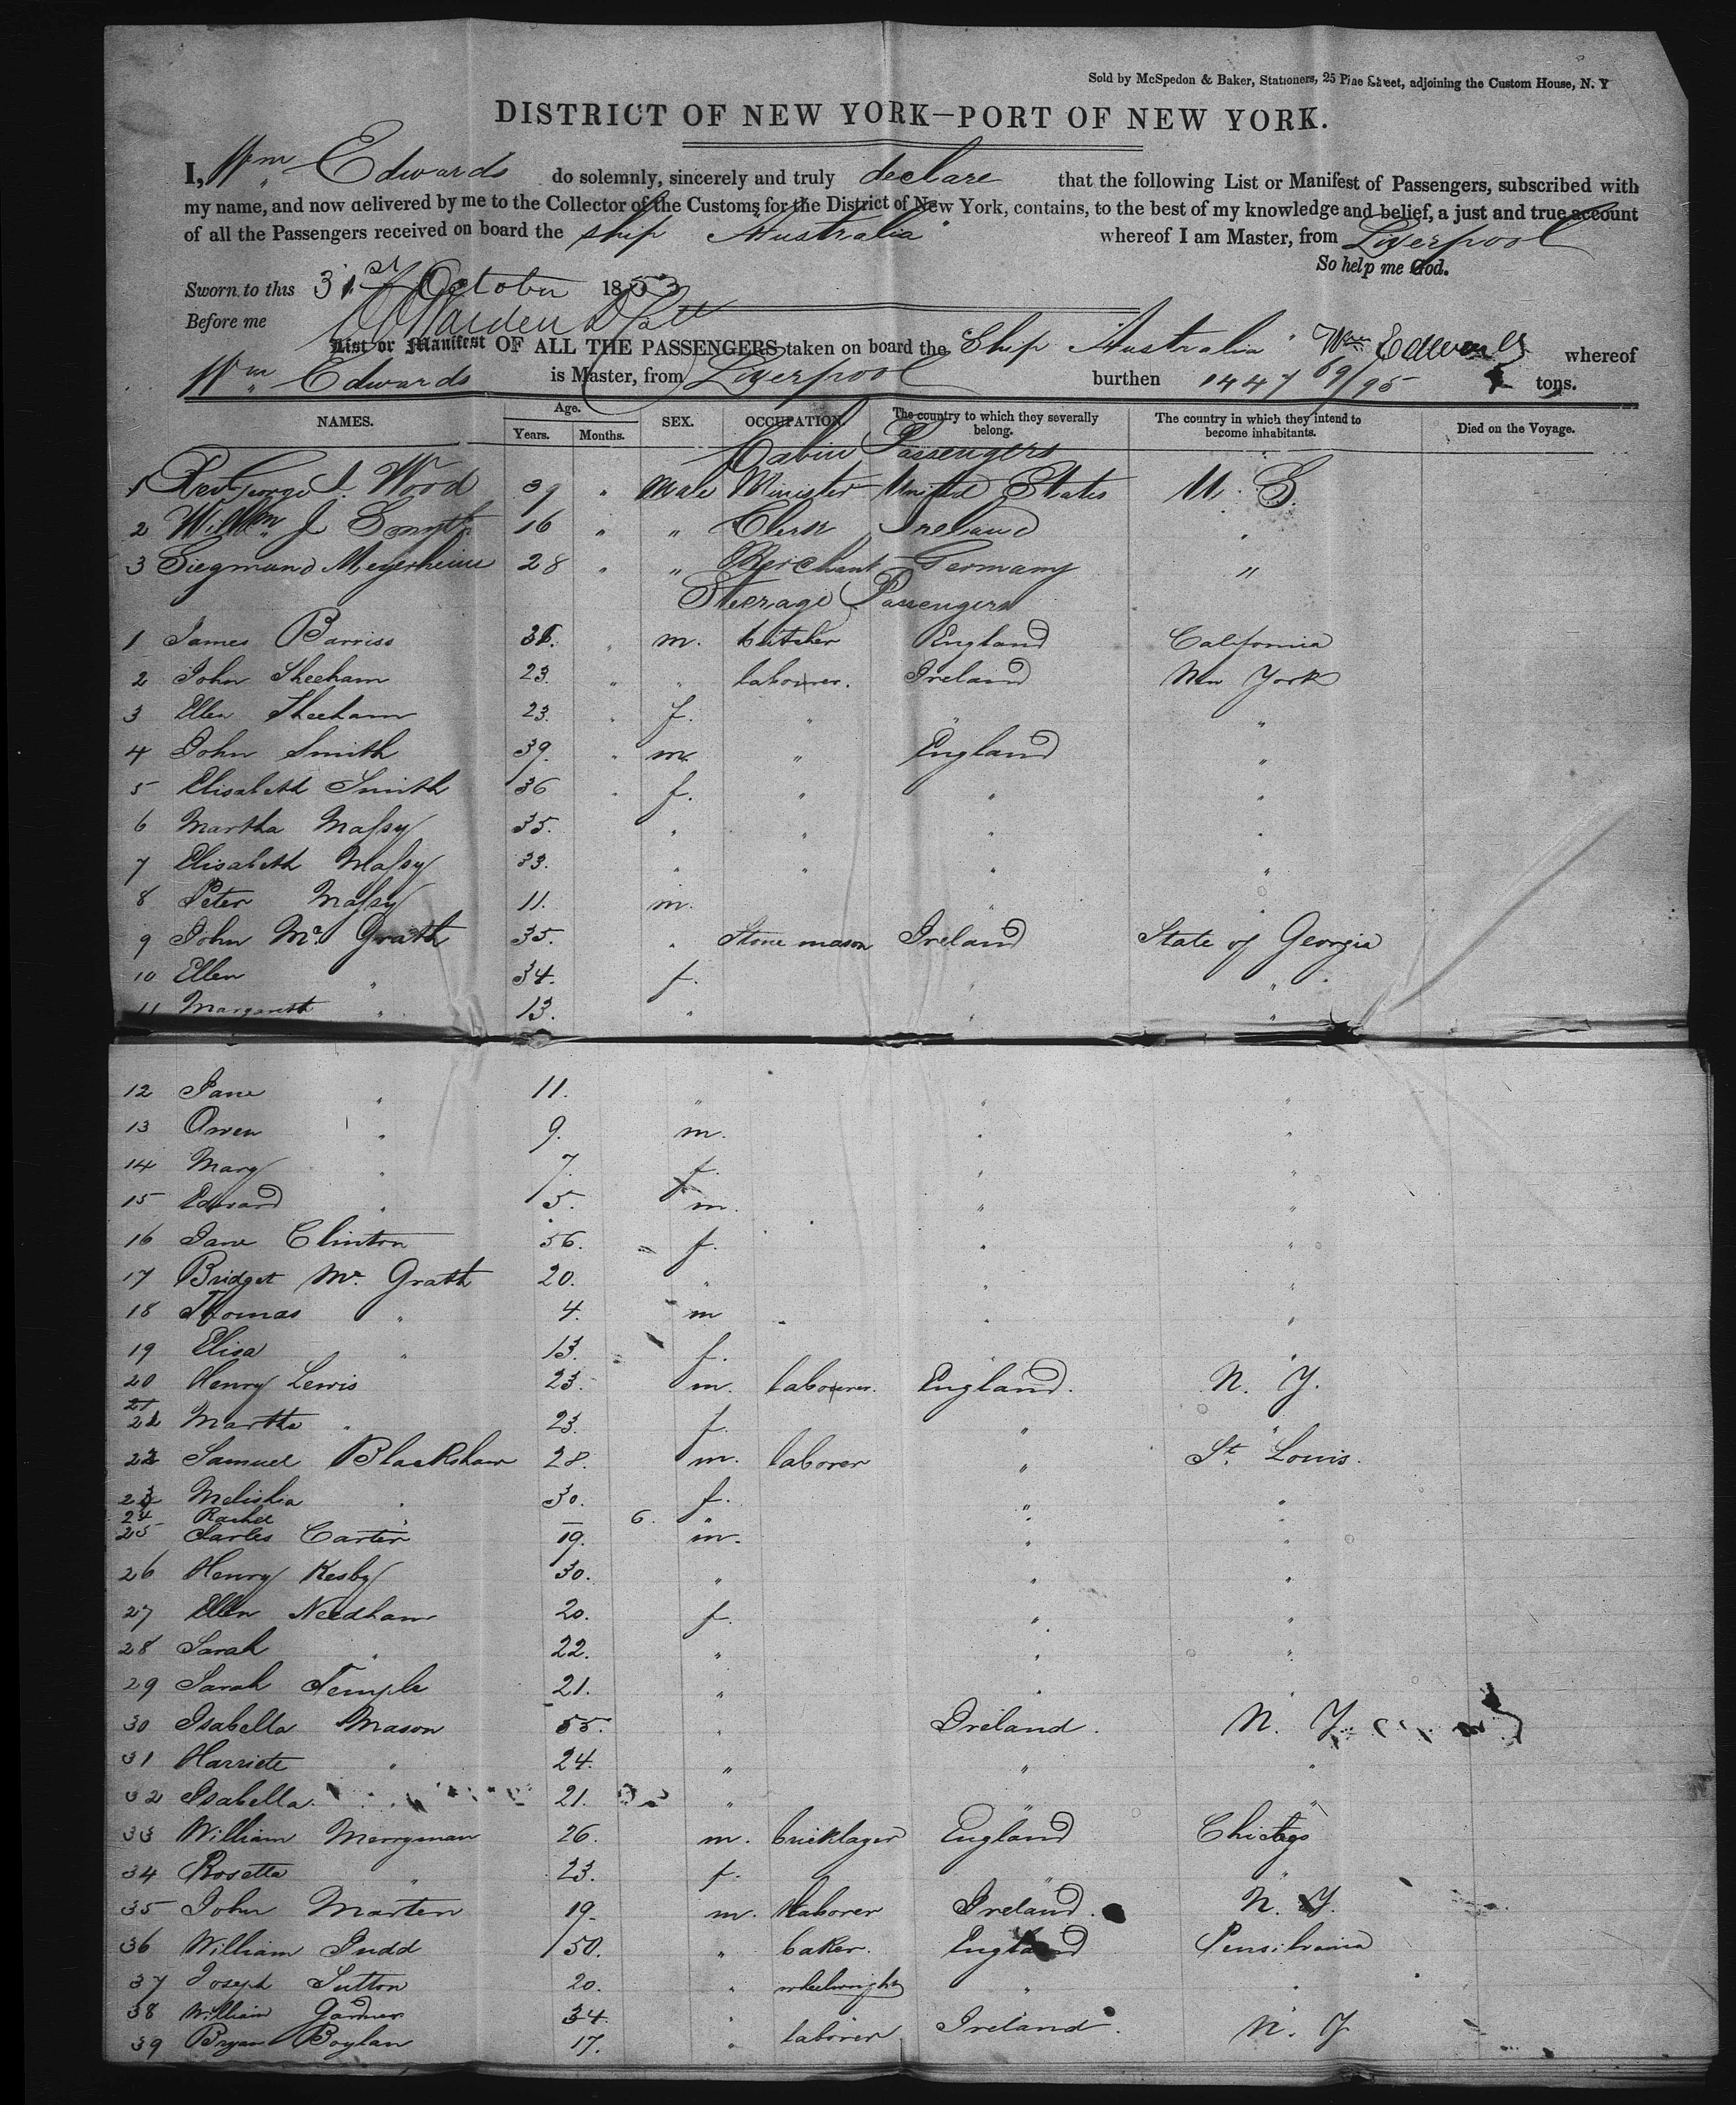 Sold by McSpedon & Baker, Stationers, 25 Pine Street, adjoining the Custom House, N. Y
DISTRICT OF NEW YORK—PORT OF NEW YORK.
I, Wm Edwards do solemnly, sincerely and truly declare that the following List or Manifest of Passengers, subscribed with
my name, and now delivered by me to the Collector of the Customs for the District of New York, contains, to the best of my knowledge and belief, a just and true account
of all the Passengers received on board the ship "Australia" whereof I am Master, from Liverpool
So help me God.
Sworn to this 31st October 1853
Before me
List or Manifest OF ALL THE PASSENGERS taken on board the Ship Australia" Wm Edwards whereof
Wm Edwards is Master, from Liverpool burthen 1447 69/95 tons.
NAMES. Age. Years. Months. SEX. OCCUPATION. The country to which they severally belong. The country in which they intend to become inhabitants. Died on the Voyage.
Cabin Passengers
1 Rev George I. Wood 39 " Male Minister United States U. S.
2 Willm J Smyth 16 " " Clerk Ireland "
3 Siegmund Meyerheim 28 " " Merchant Germany "
Steerage Passengers
1 James Barriss 36. " m. butcher England California
2 John Sheeham 23. " " labourer. Ireland New York
3 Ellen Sheeham 23. " f. " " "
4 John Smith 39. " m. " England "
5 Elisabeth Smith 36 " f. " " "
6 Martha Massy 35. " " " "
7 Elisabeth Massy 33. " " " "
8 Peter Massy 11. m. " "
9 John Mc. Grath 35. " Stone mason Ireland State of Georgia
10 Ellen " 34. f. " "
11 Margareth " 13. " " "
12 Jane " 11. " " "
13 Owen " 9. m. " "
14 Mary " 7. f. " "
15 Edward " 5. m. " "
16 Jane Clinton 56. f. " "
17 Bridget Mc. Grath 20. " " "
18 Thomas " 4. m " "
19 Elisa " 13. f. "
20 Henry Lewis 23. m. labourer. England. N. Y.
21 Martha " 23. f. " "
22 Samuel Blackshaw 28. m. laborer " St. Louis.
23 Melishia " 30. f. " "
24 Rachel " — 6. " " "
25 Charles Carter 19. m. " "
26 Henry Kesby 30. " " "
27 Ellen Needham 20. f. " "
28 Sarah " 22. " " "
29 Sarah Temple 21. " " "
30 Isabella Mason 55. " Ireland. N. Y.
31 Harriete " 24. " " "
32 Isabella " 21. " " "
33 William Merryman 26. m. bricklayer England Chicago
34 Rosetta " 23. f. " " "
35 John Marten 19. m. laborer Ireland. N. Y.
36 William Judd 50. " baker. England Pensilvania
37 Joseph Sutton 20. " wheelwright " "
38 William Gardner 34. "
39 Bryan Boylan 17. " laborer Ireland. N. Y.